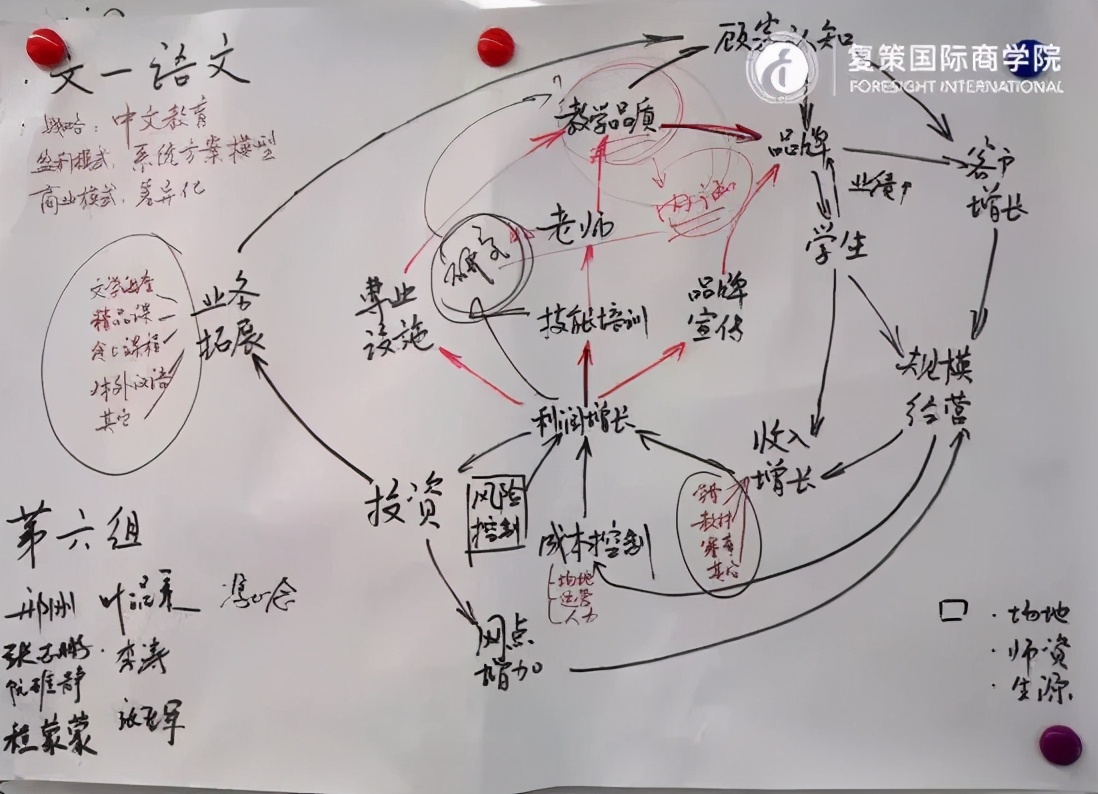 文一语文
战略：中文教育
盈利模式，系统方案模型
商业模式，差异化
顾客认知
复策国际商学院
FORESIGHT INTERNATIONAL
教学品质
品牌
业绩↑
客户
增长
学生
老师
研究
专业
设施
技能培训
品牌
宣传
业务
拓展
精品课
对外汉语
其它
规模
经营
利润增长
收入
增长
投资
风险
控制
成本控制
场地
运营
人力
教材
赛事
其它
网点
增加
第六组
叶品来
李涛
程蒙蒙
□ · 场地
· 师资
· 生源